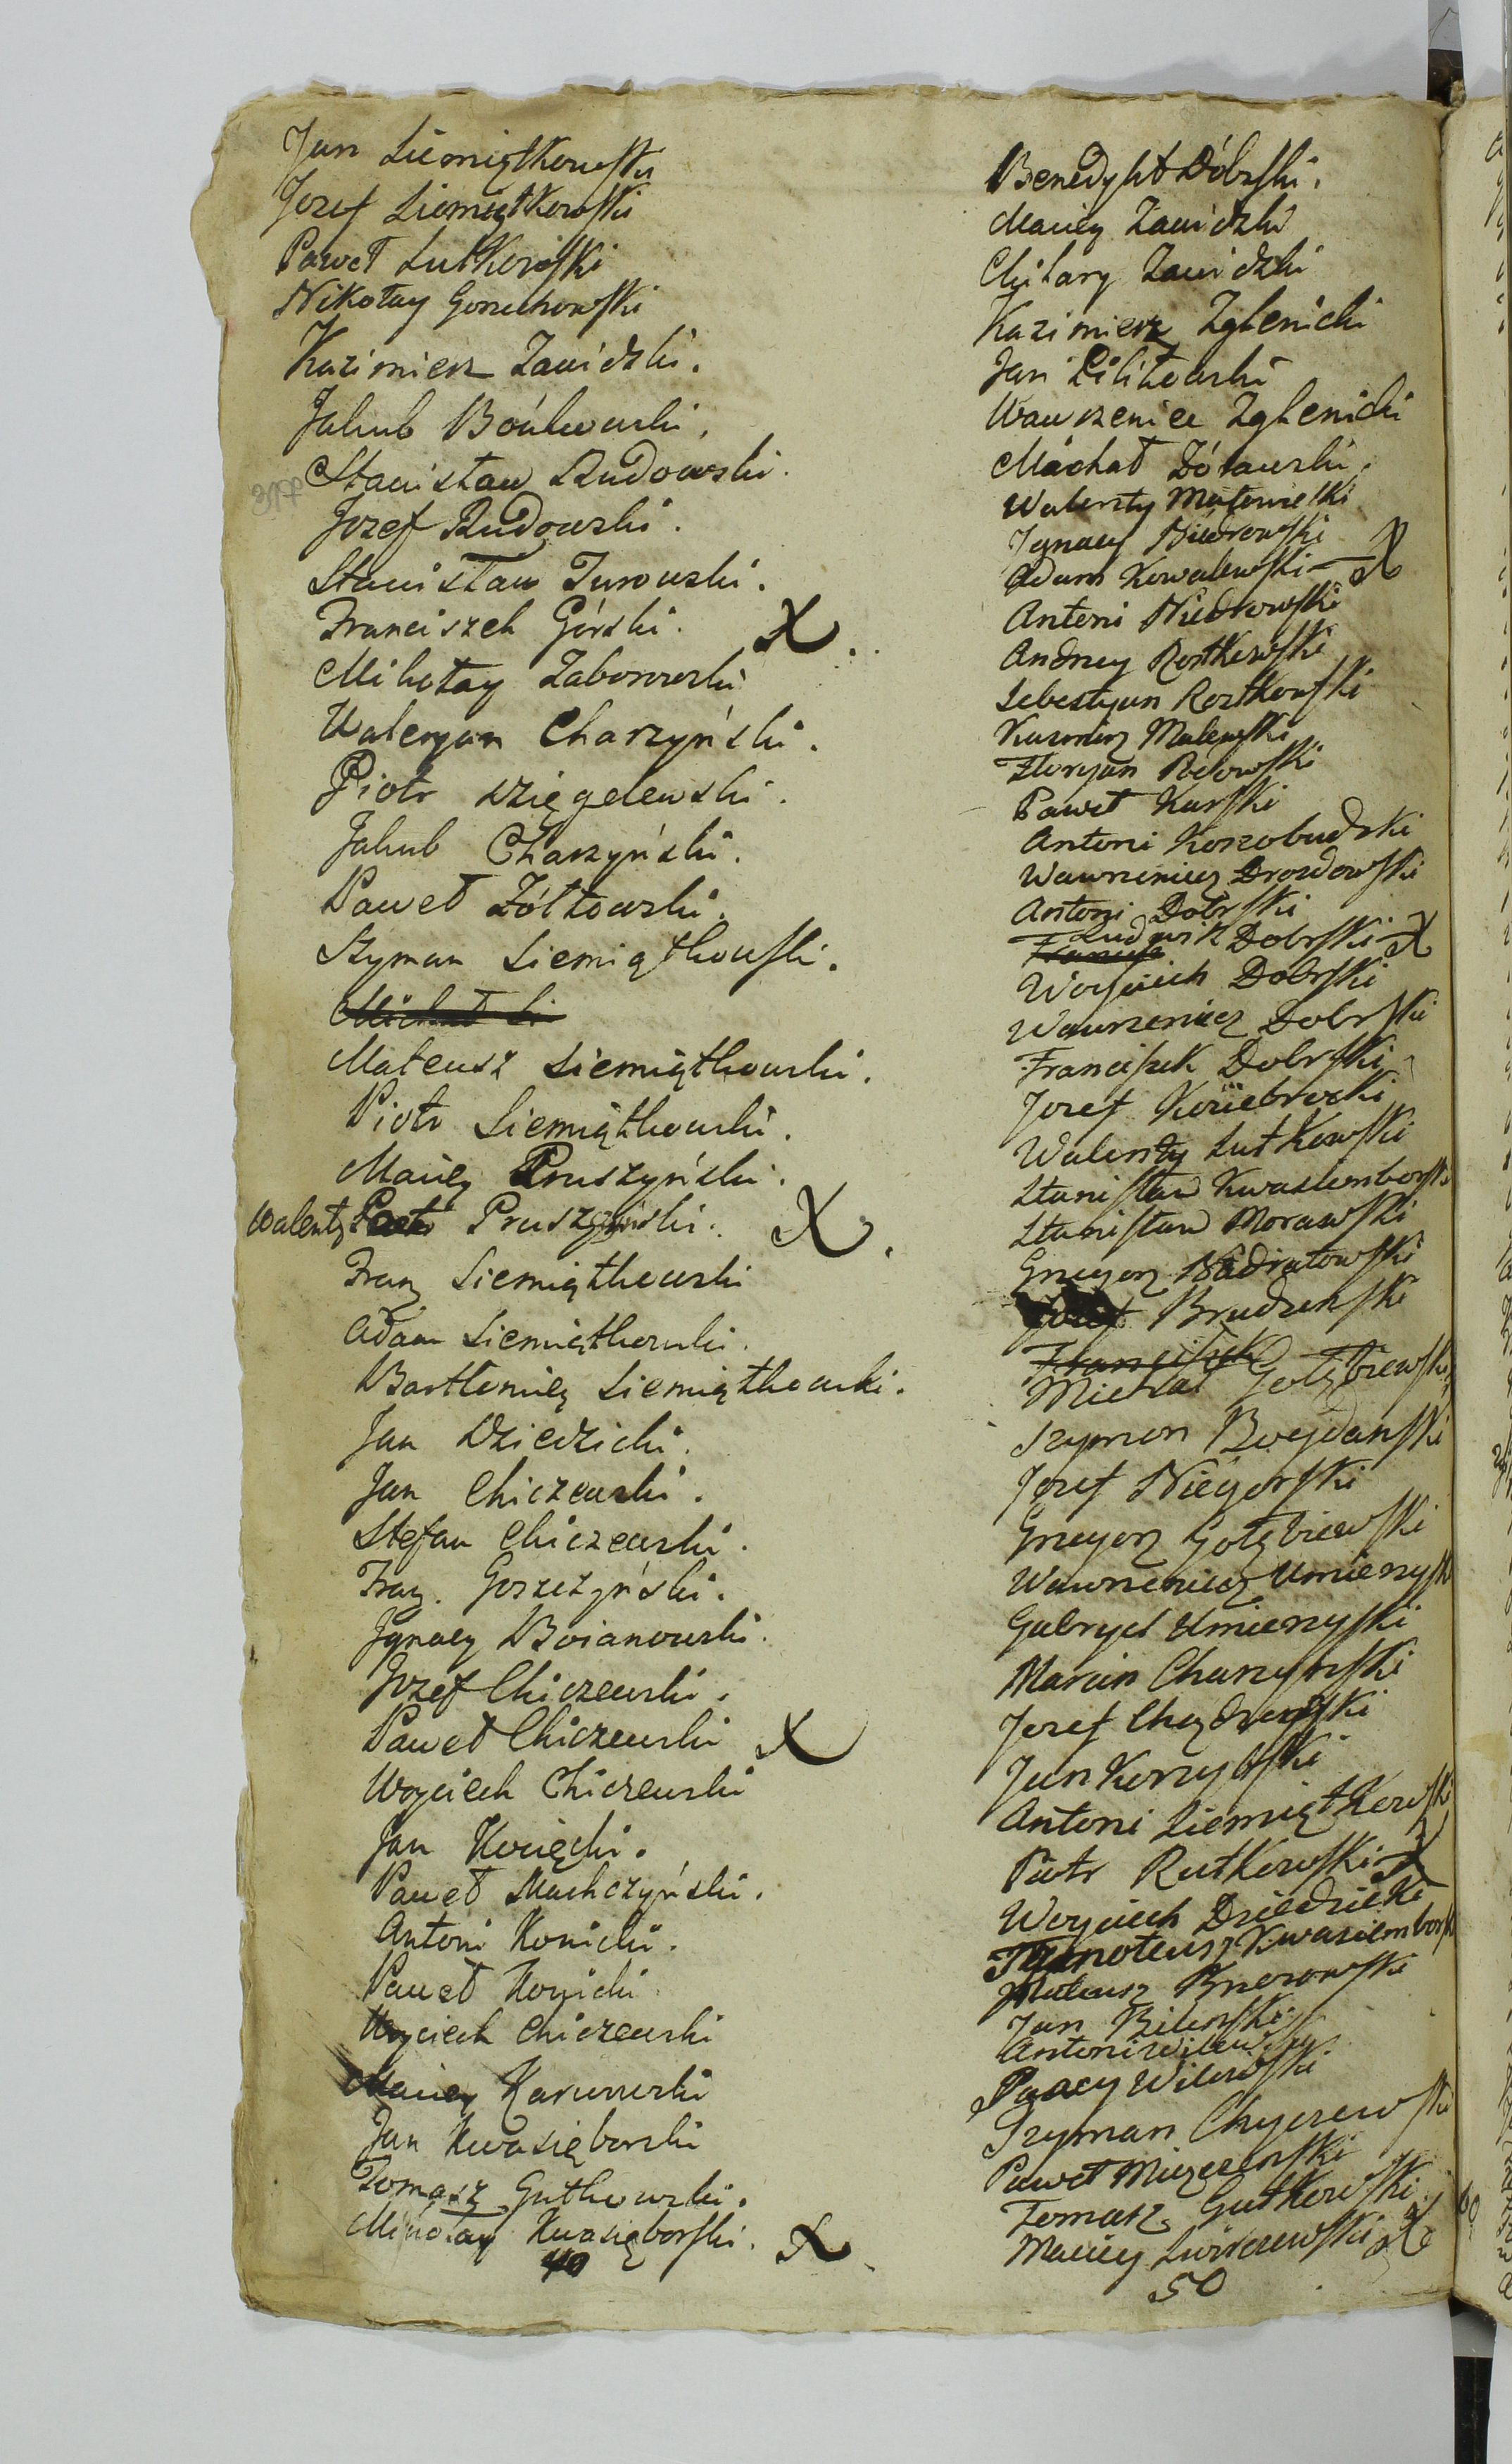 Jan Siemiątkowski
Jozef Siemiątkowski
Paweł Lutkowski
Nikołay Goruchowski
Kazimierz Zawidzki.
Jakub Bońkowski.
Stanisław Rudowski.
Jozef Rudowski.
Stanisław Turowski.
Franciszek Górski. X
Mikołay Zaborowski
Waleryan Charzyński.
Piotr Dzięgelewski.
Jakub Charzyński.
Paweł Żółtowski.
Szyman Siemiątkowski.
Michał Si
Mateusz Siemiątkowski.
Piotr Siemiątkowski.
Maciey Pruszyński.
Walenty Piotr Pruszyński. X
Fran Siemiątkowski
Adam Siemiątkowski.
Bartłomiey Siemiątkowski.
Jan Dziedzicki.
Jan Chiczewski.
Stefan Chiczewski.
Fran. Gorzczyński.
Jgnacy Boianowski.
Jozef Chiczewski.
Paweł Chiczewski X
Woyciech Chiczewski
Jan Kosięcki.
Paweł Muchczyński.
Antoni Konicki.
Paweł Konicki.
Woyciech Chiczewski
Maciey Karwowski
Jan Kwasięborski
Tomasz Gutkowski.
Mikołay Kwasięborski. X
40
Benedykt Dóbrski.
Maciey Zawidzki
Chilary Zawidzki
Kazimierz Zglenicki
Jan Lilitowski
Wawrzeniec Zglenicki
Michał Żórawski.
Walenty Małowieski
Jgnacy Niedrowski
Adam Kowalewski X
Antoni Niedrowski
Andrzey Rostkowski
Sebestyan Rostkowski
Kazmirz Malewski
Floryan Rodowski
Paweł Karski
Antoni Kozobudzki
Wawrzeniec Drozdowski
Antoni Dobrski
Ludwik Dobrski X
Woyciech Dobrski
Wawrzeniec Dobrski
Franciszek Dobrski
Jozef Koziebrocki
Walenty Lutkowski
Stanisław Kwasiemborski
Stanisław Morawski
Grzegorz Nadratowski
Jozef Brudzinski
Franciszek
Michał Gołębiewski
Szymon Bogdanski
Jozef Niegorski
Grzegorz Gołębiewski
Wawrzeniec Umienysk
Gabryel Umienyski
Marcin Charzynski
Jozef Chądzynski
Jan Korzybski
Antoni Siemiątkowski
Piotr Rutkowski X
Woyciech Dziedzicki
Tymoteusz Kwasiemborsk
Mateusz Brzozowski
Jan Bilinski
Antoni Wilewski
Jgnacy Wilewski
Szyman Chyczewski
Paweł Miszewski
Tomasz Gutkowski
Maciey Swirczewski X
50